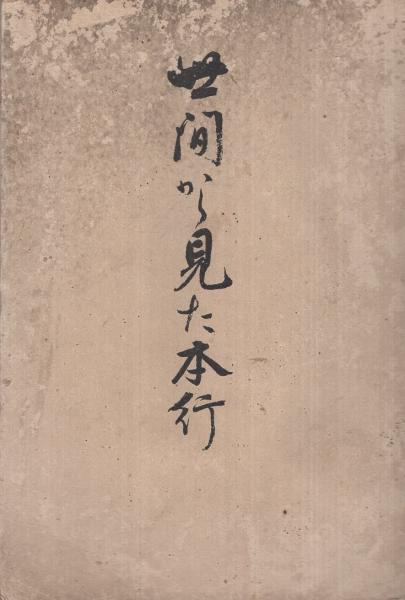 世間から見た本行